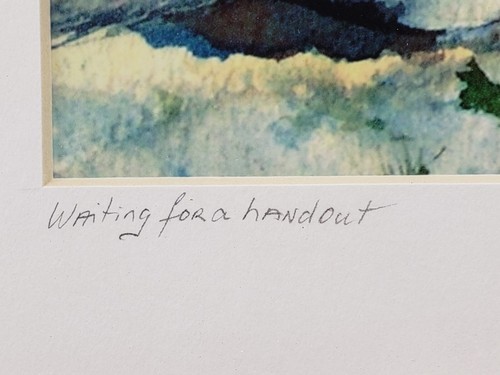 Waiting for a handout